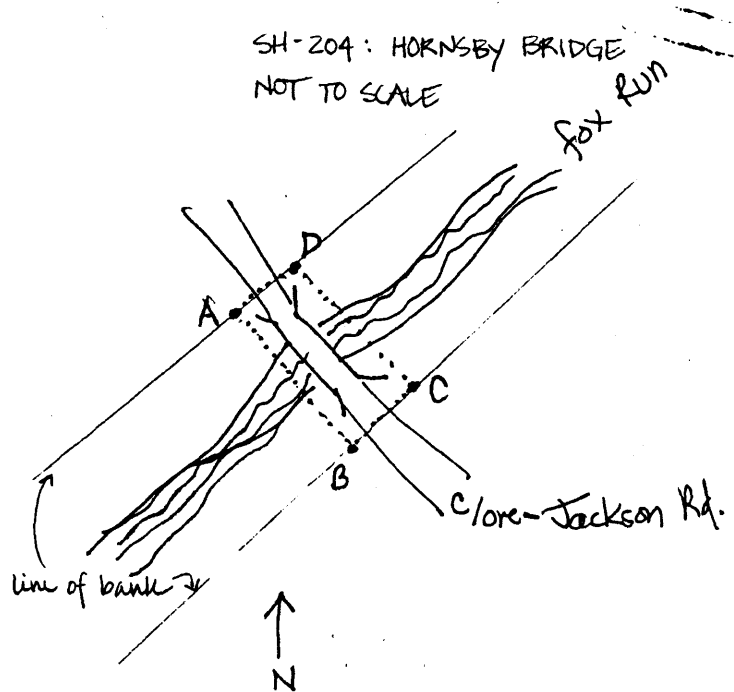 SH-204: HORNSBY BRIDGE
NOT TO SCALE
Fox Run
D
A
C
B
Clore-Jackson Rd.
line of bank
N